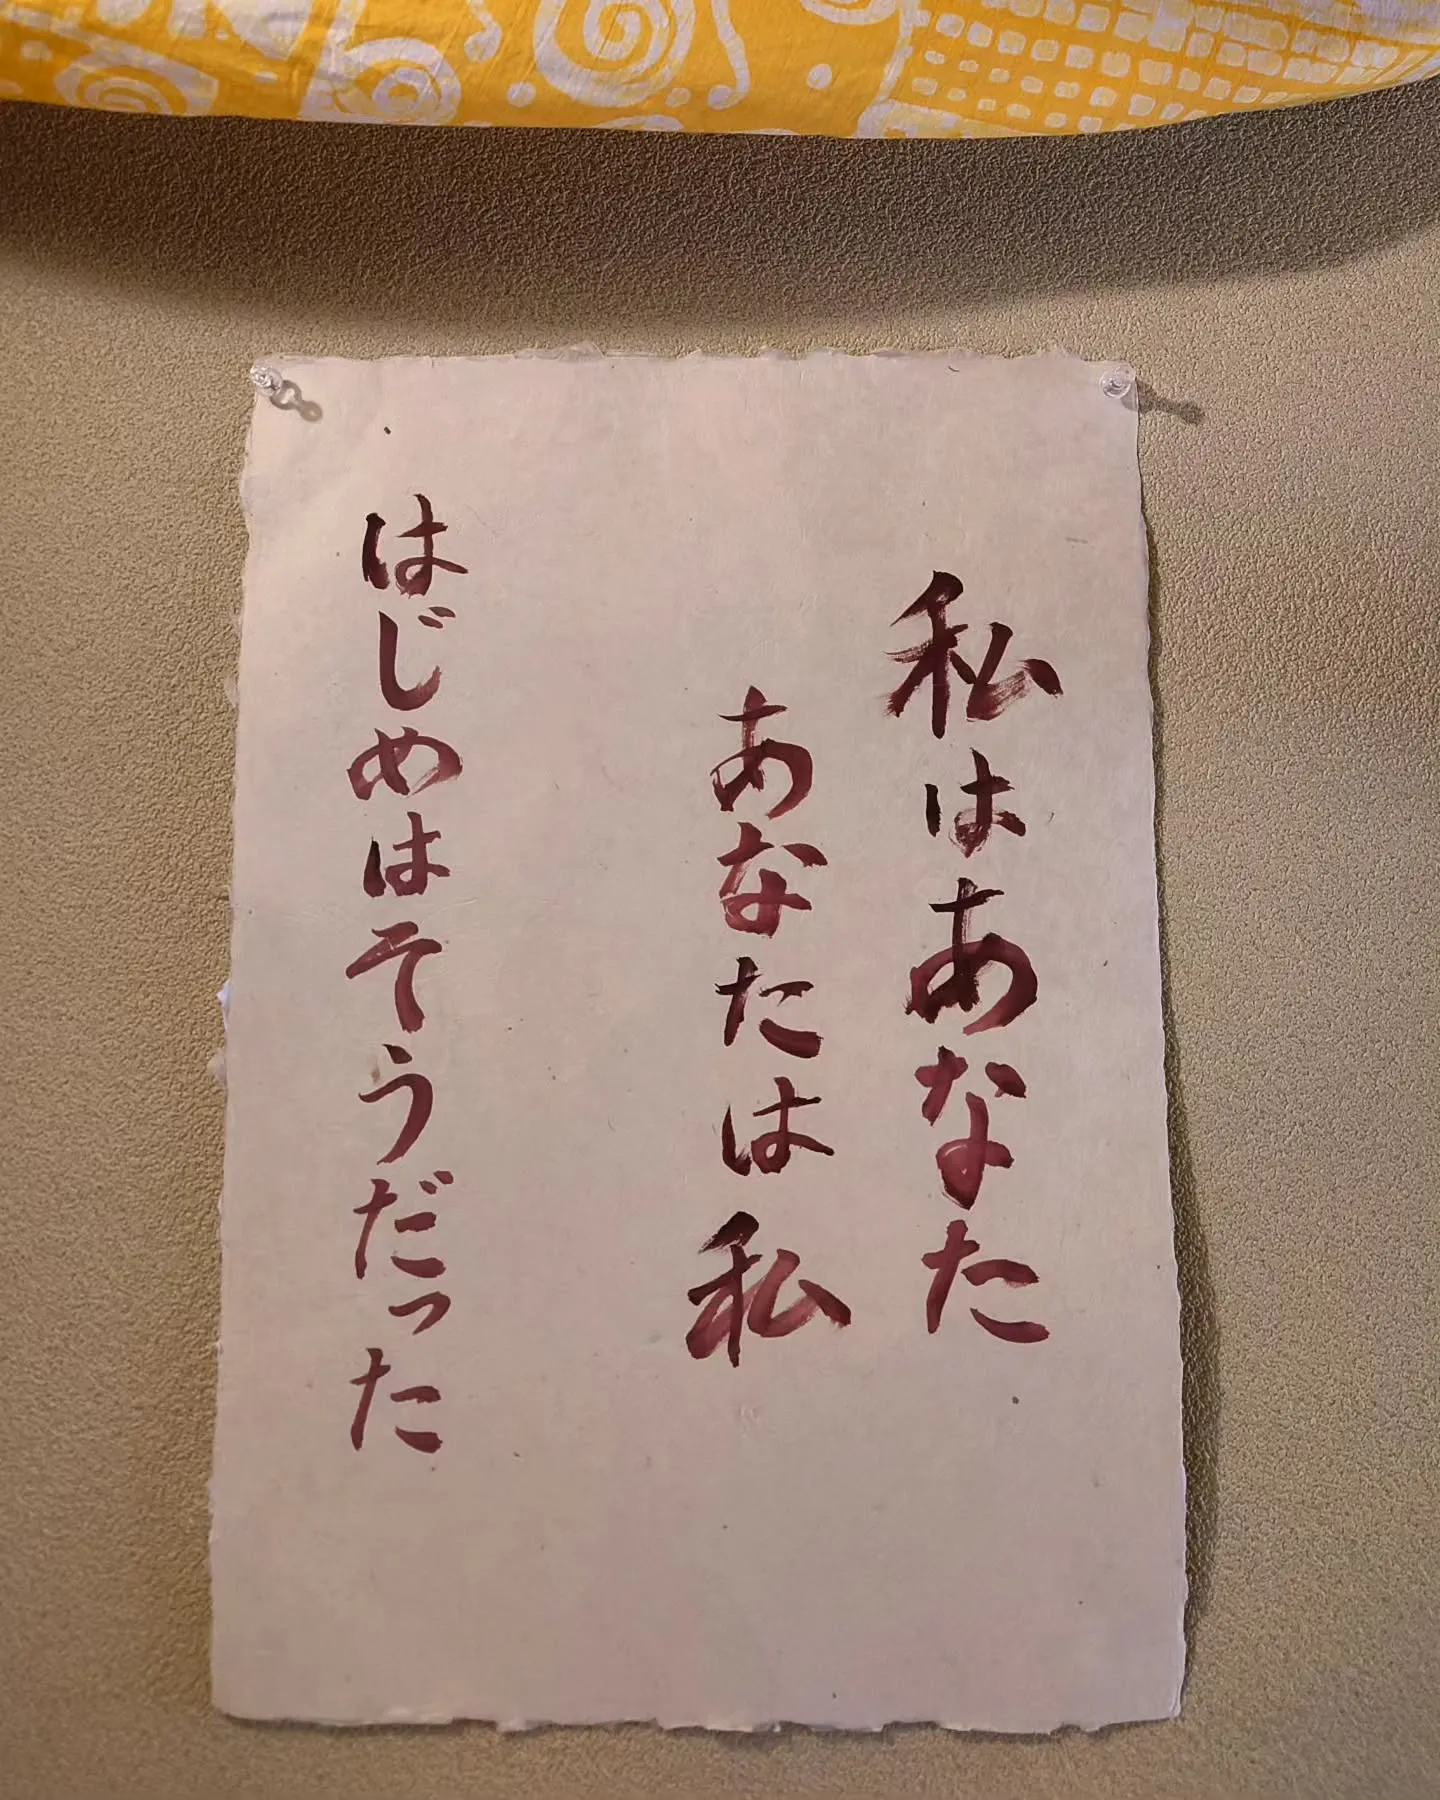 私はあなた
あなたは私
はじめはそうだった